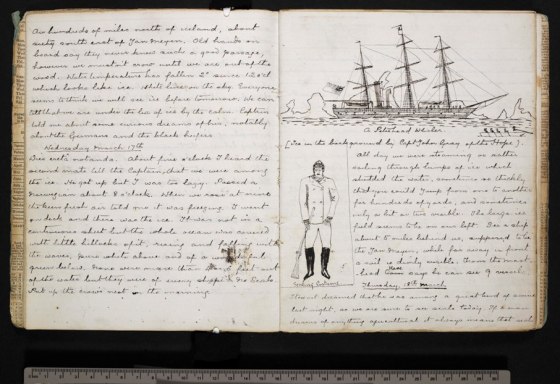 hundreds of miles north of Iceland, about
sixty south east of Jan Meyen. Old hands on
board say they never knew such a good passage,
however we mustn't crow until we are out of the
wood. Water temperature has fallen 2° since 12 o'cl
which looks like ice. White line on the sky. Everyone
seems to think we will see ice before tomorrow. We can
tell that we are under the lee of ice by the calm. Captain
told me about some curious dreams of his, notably
about the Germans and the black heifers.
Wednesday March 17th
Dies creta notanda. About five o'clock I heard the
second mate tell the Captain that we were among
the ice. He got up but I was too lazy. Passed a
Norwegian about 8 o'clock. When we rose at nine
the keen fresh air told me it was freezing. I went
on deck and there was the ice. It was not in a
continuous sheet but the whole ocean was covered
with little hillocks of it, rising and falling with
the waves, pure white above and of a wonderful
green below. None were more than feet out
of the water but they were of every shape. No Seals
Put up the crow's nest in the morning.
A Peterhead Whaler
[Ice in the background by Capt John Gray of the Hope].
All day we were steaming or rather
sailing through lumps of ice which
studded the water, sometimes so thickly
that you could jump from one to another
for hundreds of yards, and sometimes
only one or two visible. The large ice
field seems to be on our left. See a ship
about 10 miles behind us, supposed to be
the Jan Meyen, while far away in front
a sail is dimly visible. From the mast
head Colin says he can see 7 vessels.
Thursday, 18th March
dreamed that he was among a great herd of swine
last night, so we are sure to see seals today. If a man
dreams of anything agricultural it always means that seals